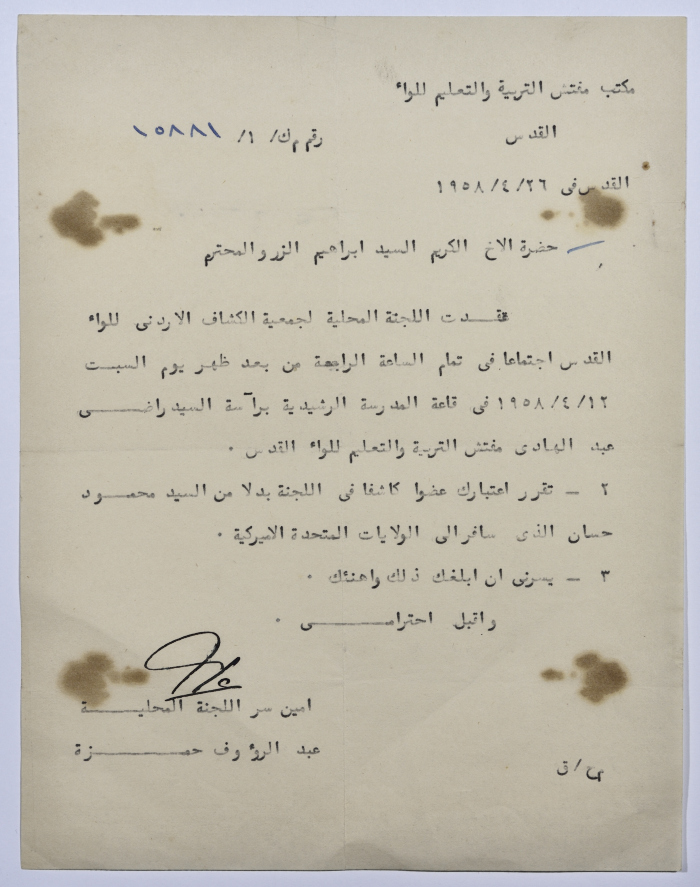 مكتب مفتش التربية والتعليم للواء
القدس
رقم م ك/ ١/ ١٥٨٨١
القدس فى ٢٦/ ٤/ ١٩٥٨
حضرة الاخ الكريم السيد ابراهيم الزرو المحترم
عقدت اللجنة المحلية لجمعية الكشاف الاردنى للواء
القدس اجتماعا فى تمام الساعة الرابعة من بعد ظهر يوم السبت
١٢/ ٤/ ١٩٥٨ فى قاعة المدرسة الرشيدية برآسة السيد راضى
عبد الهادى مفتش التربية والتعليم للواء القدس ٠
٢ - تقرر اعتبارك عضوا كاشفا فى اللجنة بدلا من السيد محمود
حسان الذى سافر الى الولايات المتحدة الاميركية ٠
٣ - يسرنى ان ابلغك ذلك واهنئك ٠
واقبل احترامى ٠
امين سر اللجنة المحلية
عبد الرؤوف حمزة
مح/ ق